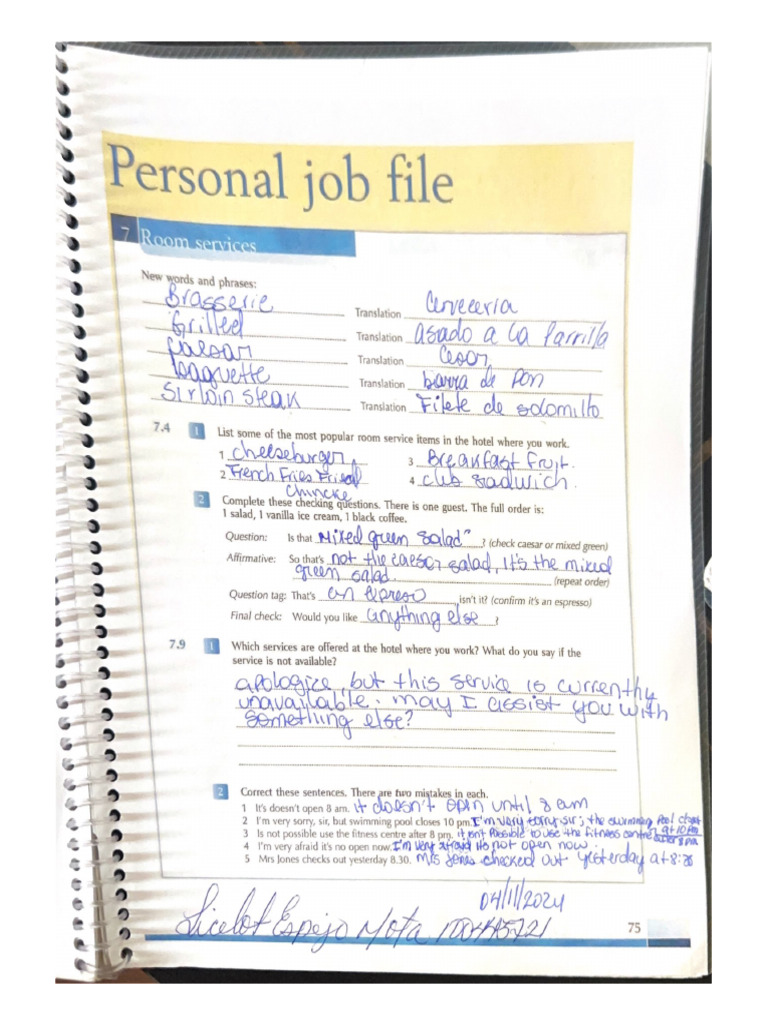 Personal job file
7 Room services
New words and phrases:
Brasserie Translation Cerveceria
Grilled Translation asado a la Parrilla
Caesar Translation Cesar
baguette Translation barra de Pan
Sirloin steak Translation Filete de solomillo
7.4 1 List some of the most popular room service items in the hotel where you work.
1 cheeseburger, 3 Breakfast Fruit.
2 French Fries Fried 4 club sadwich.
2 Complete these checking questions. There is one guest. The full order is:
1 salad, 1 vanilla ice cream, 1 black coffee.
Question: Is that Mixed green salad" ? (check caesar or mixed green)
Affirmative: So that's not the caesar salad, it's the mixed
green salad. (repeat order)
Question tag: That's an expreso isn't it? (confirm it's an espresso)
Final check: Would you like anything else ?
7.9 1 Which services are offered at the hotel where you work? What do you say if the
service is not available?
apologize but this service is currenthy
unavailable. may I assist you with
something else?
2 Correct these sentences. There are two mistakes in each.
1 It's doesn't open 8 am. it doesn't open until 8 am
2 I'm very sorry, sir, but swimming pool closes 10 pm. I'm very sorry sir; the swimming Pool closet at 10 Pm
3 Is not possible use the fitness centre after 8 pm. it isn't Possible to use the fitness centre after 8 pm
4 I'm very afraid it's no open now. I'm very afraid it's not open now.
5 Mrs Jones checks out yesterday 8.30. Mrs Jones checked out yesterday at 8:30
04/11/2024
Licelot Espejo Mota
75